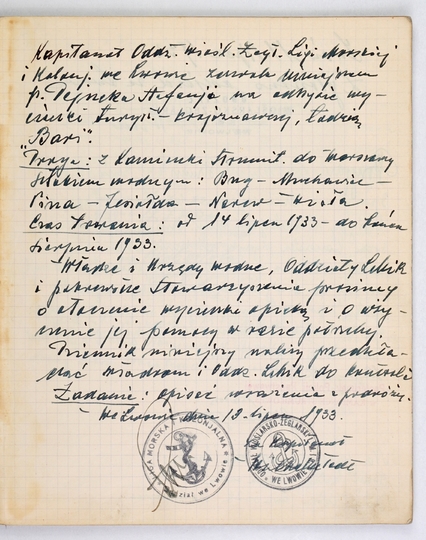 Kapitanat Oddz. Wiośl. Żegl. Ligi Morskiej
i Kolonj. we Lwowie zezwala niniejszem
p. Stefanja na odbycie wy-
cieczki turyst. - krajoznawczej, łodzią
"Bari".
Droga: z Kamionki Strumił. do Warszawy
szlakiem wodnym: Bug - Muchawiec -
Pina - Jasiołda - Narew - Wisła.
Czas trwania: od 14 lipca 1933 - do końca
sierpnia 1933.
Władze i Urzędy wodne, Oddziały LMiK
i pokrewne Stowarzyszenia prosimy
o otoczenie wycieczki opieką i o uży-
czenie jej pomocy w razie potrzeby.
Dziennik niniejszy należy przedkła-
dać władzom i Oddz. LMiK do kontroli
Zadanie: opisać wrażenia z podróży.
We Lwowie dnia 12 lipca 1933
Kapitanat
LIGA MORSKA I KOLONJALNA
Oddział we Lwowie
WE LWOWIE